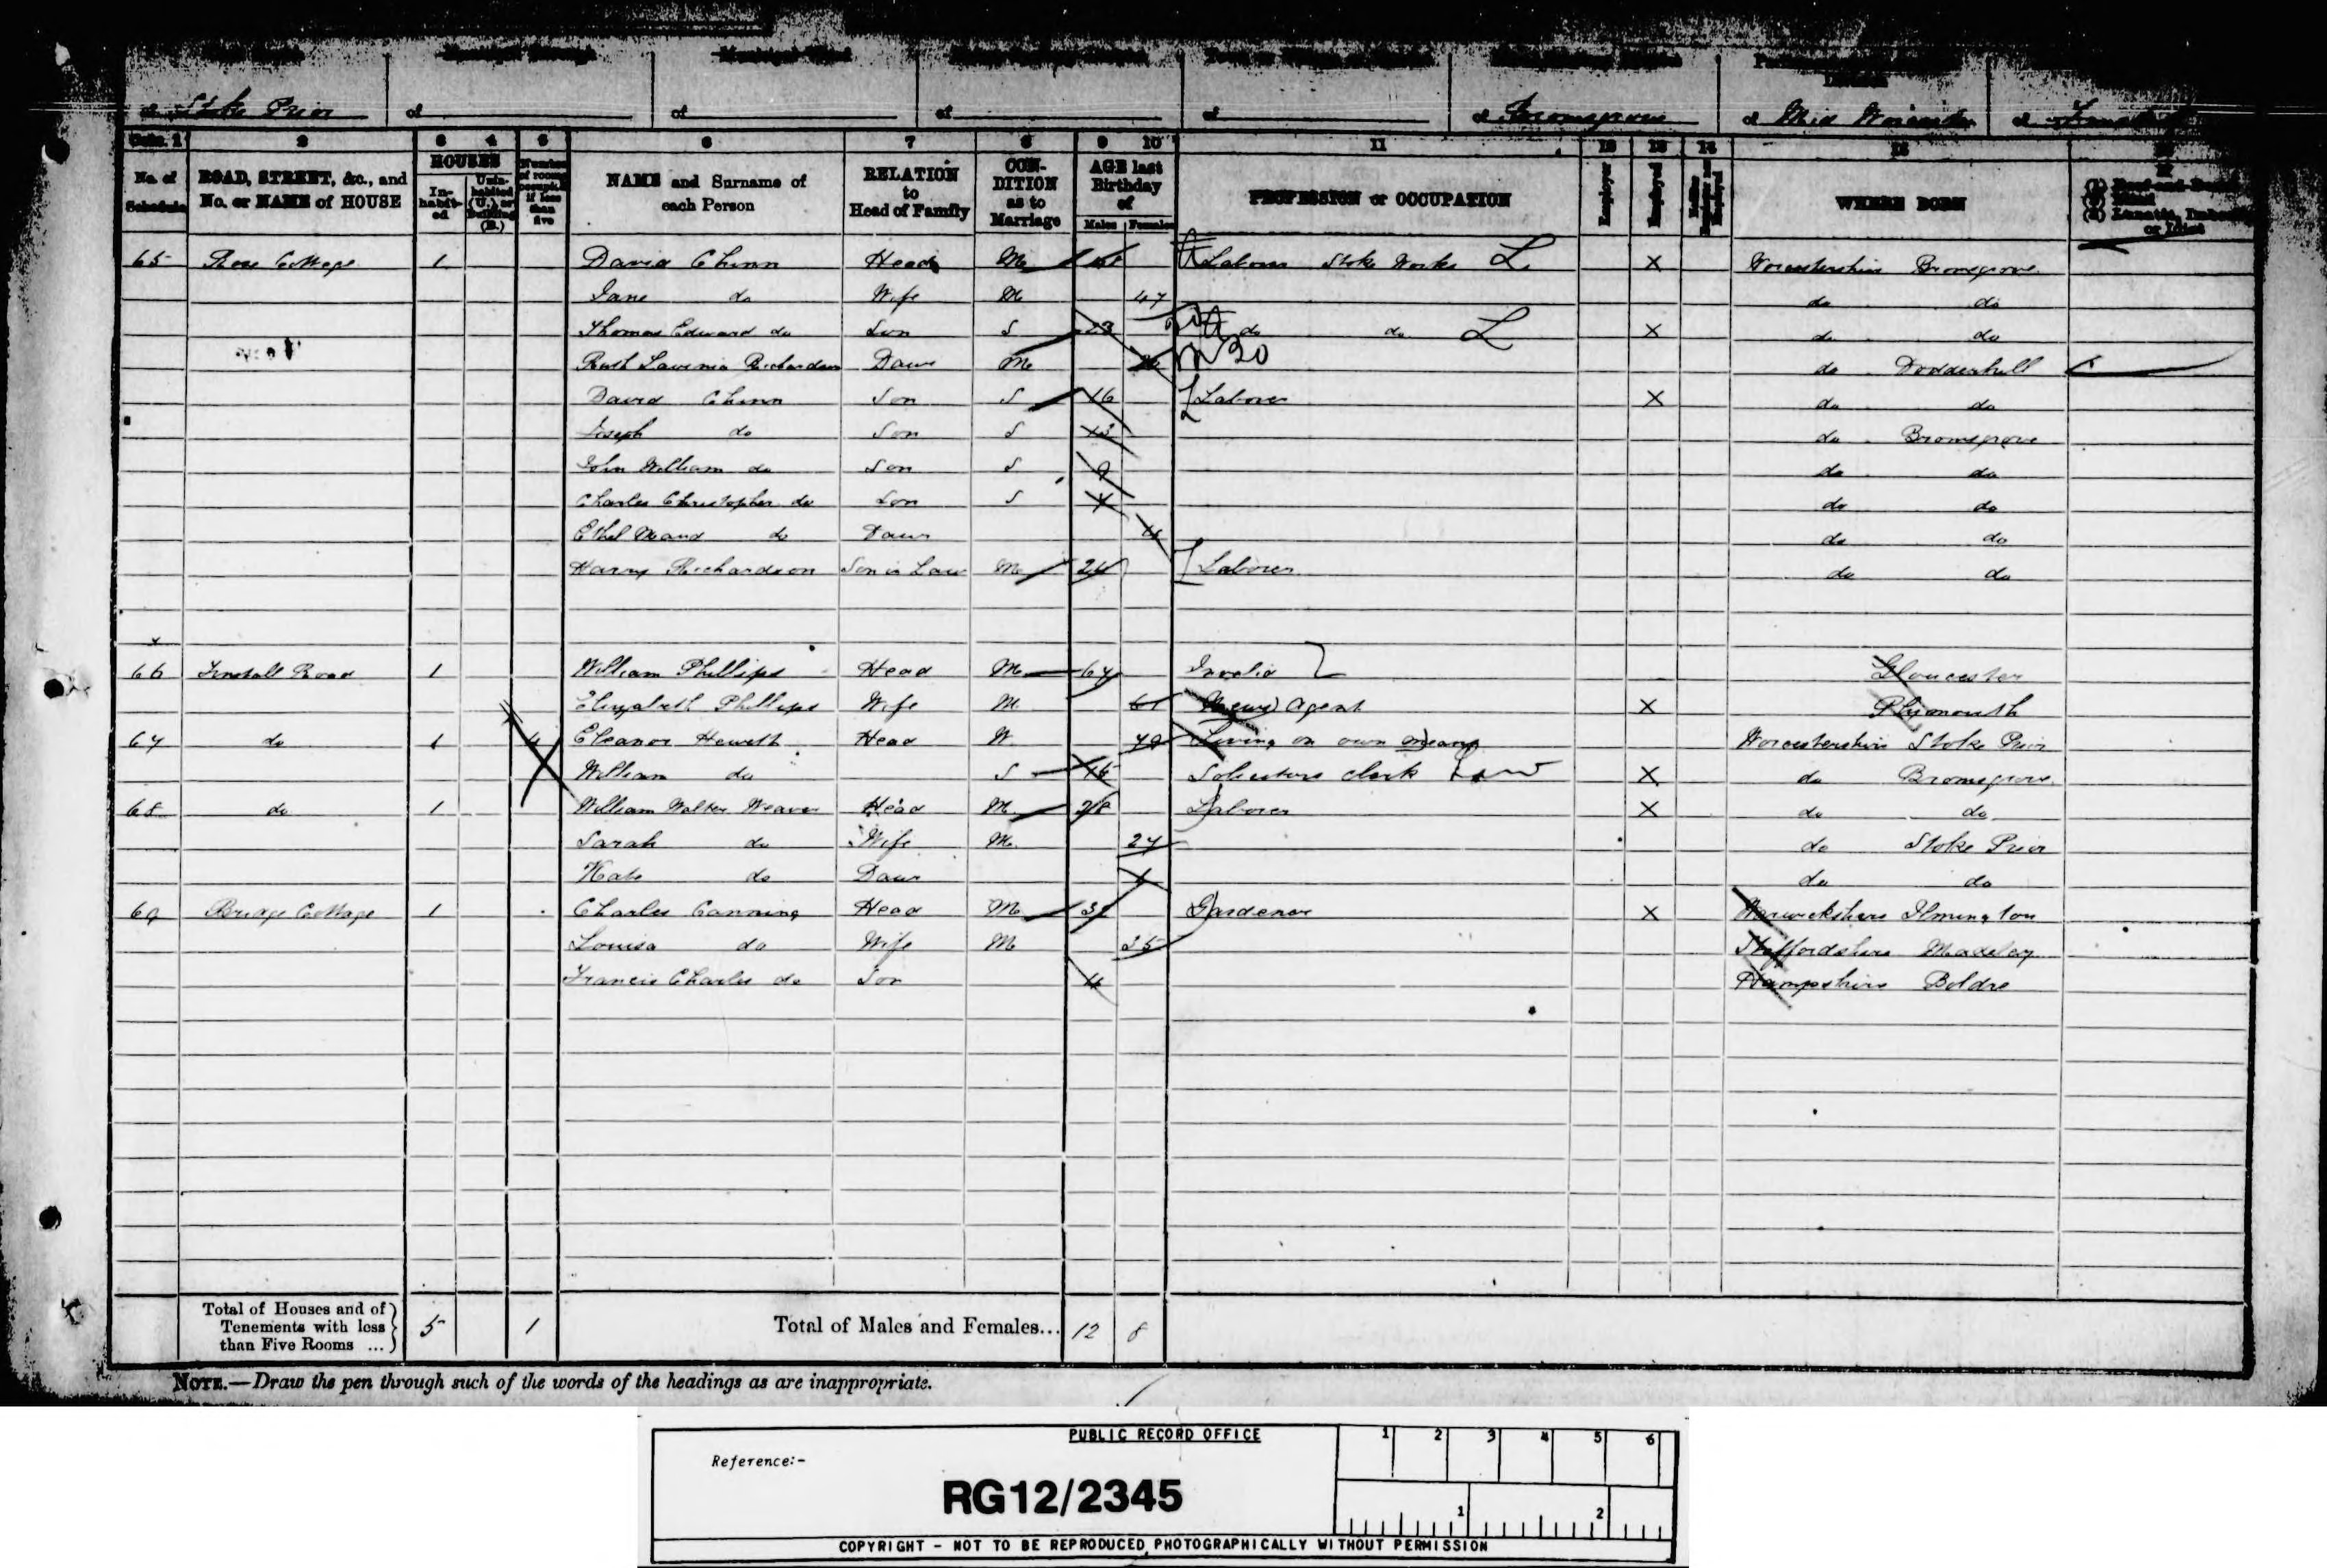 of Stoke Prior of of of of of Bromsgrove of Mid Worcester of
Cols. 1 2 3 4 5 6 7 8 9 10 11 12 13 14 15 16
No. of Schedule ROAD, STREET, &c., and No. or NAME of HOUSE HOUSES In-habit-ed Unin-habited (U.) or Building (B.) Number of rooms occupied if less than five NAME and Surname of each Person RELATION to Head of Family CON-DITION as to Marriage AGE last Birthday of Males Females PROFESSION or OCCUPATION Employer Employed WHERE BORN
65 Rose Cottage 1 David Chinn Head M Labourer Stoke Works L X Worcestershire Bromsgrove
Jane do Wife M 47 do do
Thomas Edward do Son S 23 do do L X do do
Ruth Lavinia Richardson Daur M do Dodderhill
David Chinn Son S 16 Laborer X do do
Joseph do Son S 13 do Bromsgrove
John William do Son S 9 do do
Charles Christopher do Son S do do
Ethel Maud do Daur 4 do do
Harry Richardson Son in Law M 24 Laborer do do
66 Finstall Road 1 William Phillips Head M 67 Invalid Gloucester
Elizabeth Phillips Wife M 61 (News) Agent X Plymouth
67 do 1 4 Eleanor Hewett Head W Living on own means Worcestershire Stoke Prior
William do S 16 Solicitors clerk Law X do Bromsgrove
68 do 1 William Walter Weaver Head M 28 Laborer X do do
Sarah do Wife M 27 do Stoke Prior
Kate do Daur 1 do do
69 Bridge Cottage 1 Charles Canning Head M Gardener X Warwickshire Ilmington
Louisa do Wife M 35 Staffordshire Madeley
Francis Charles do Son 4 Hampshire Boldre
Total of Houses and of Tenements with less than Five Rooms ... 5 1 Total of Males and Females... 12 8
NOTE.—Draw the pen through such of the words of the headings as are inappropriate.
PUBLIC RECORD OFFICE 1 2 3 4 5 6
Reference:-
RG12/2345
1 2
COPYRIGHT - NOT TO BE REPRODUCED PHOTOGRAPHICALLY WITHOUT PERMISSION